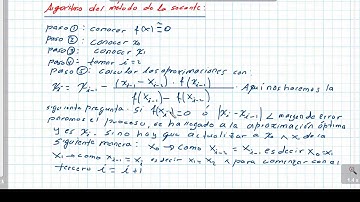 Algoritmo del método de la secante:
paso ①: conocer f(x) ≅ 0
paso ②: conocer x₀
paso ③: conocer x₁
paso ④: tomar i = 2
paso ⑤: calcular las aproximaciones con:
xᵢ = xᵢ₋₁ - (xᵢ₋₁ - xᵢ₋₂) · f(xᵢ₋₁) / (f(xᵢ₋₁) - f(xᵢ₋₂)) . Aquí nos haremos la
siguiente pregunta: Si f(xᵢ) = 0 ó |xᵢ - xᵢ₋₁| < margen de error
paramos el proceso, se ha llegado a la aproximación óptima
y es xᵢ. sino hay que actualizar a x₀ ∧ x₁ de la
siguiente manera: x₀ → como xᵢ₋₂ = xᵢ₋₁ es decir x₀ = x₁
x₁ → como xᵢ₋₁ = xᵢ es decir x₁ = x₂ ∧ para comenzar con el
tercero i = i + 1